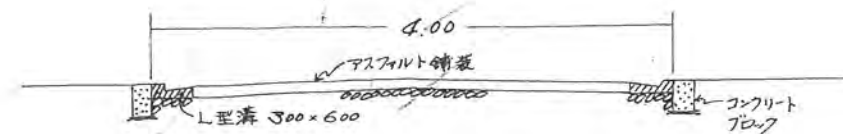 4.00
アスファルト舗装
L型溝 300×600
コンクリート
ブロック